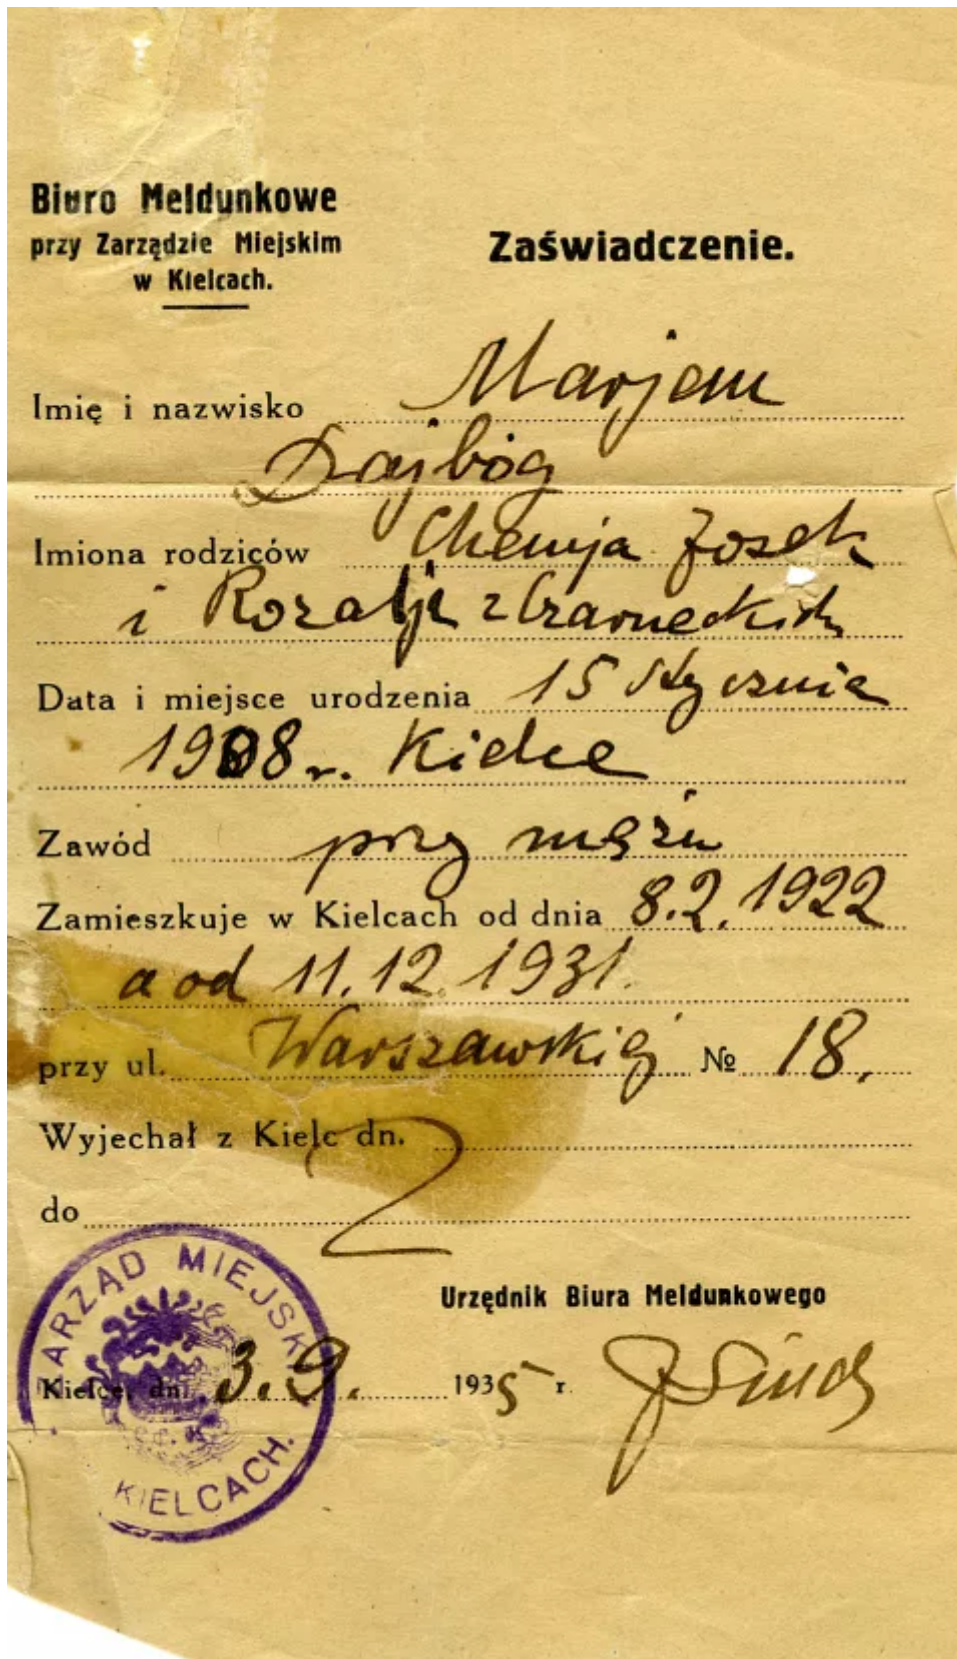 Biuro Meldunkowe
przy Zarządzie Miejskim
w Kielcach.
Zaświadczenie.
Imię i nazwisko Marjem
Dajbóg
Imiona rodziców Chemja Josek
i Rozalji z Czarneckich
Data i miejsce urodzenia 15 stycznia
1908 r. Kielce
Zawód przy mężu
Zamieszkuje w Kielcach od dnia 8.2.1922
a od 11.12.1931.
przy ul. Warszawskiej № 18.
Wyjechał z Kielc dn.
do
Urzędnik Biura Meldunkowego
Kielce, dn. 3.9. 1935 r.
ZARZĄD MIEJSKI
KIELCACH.